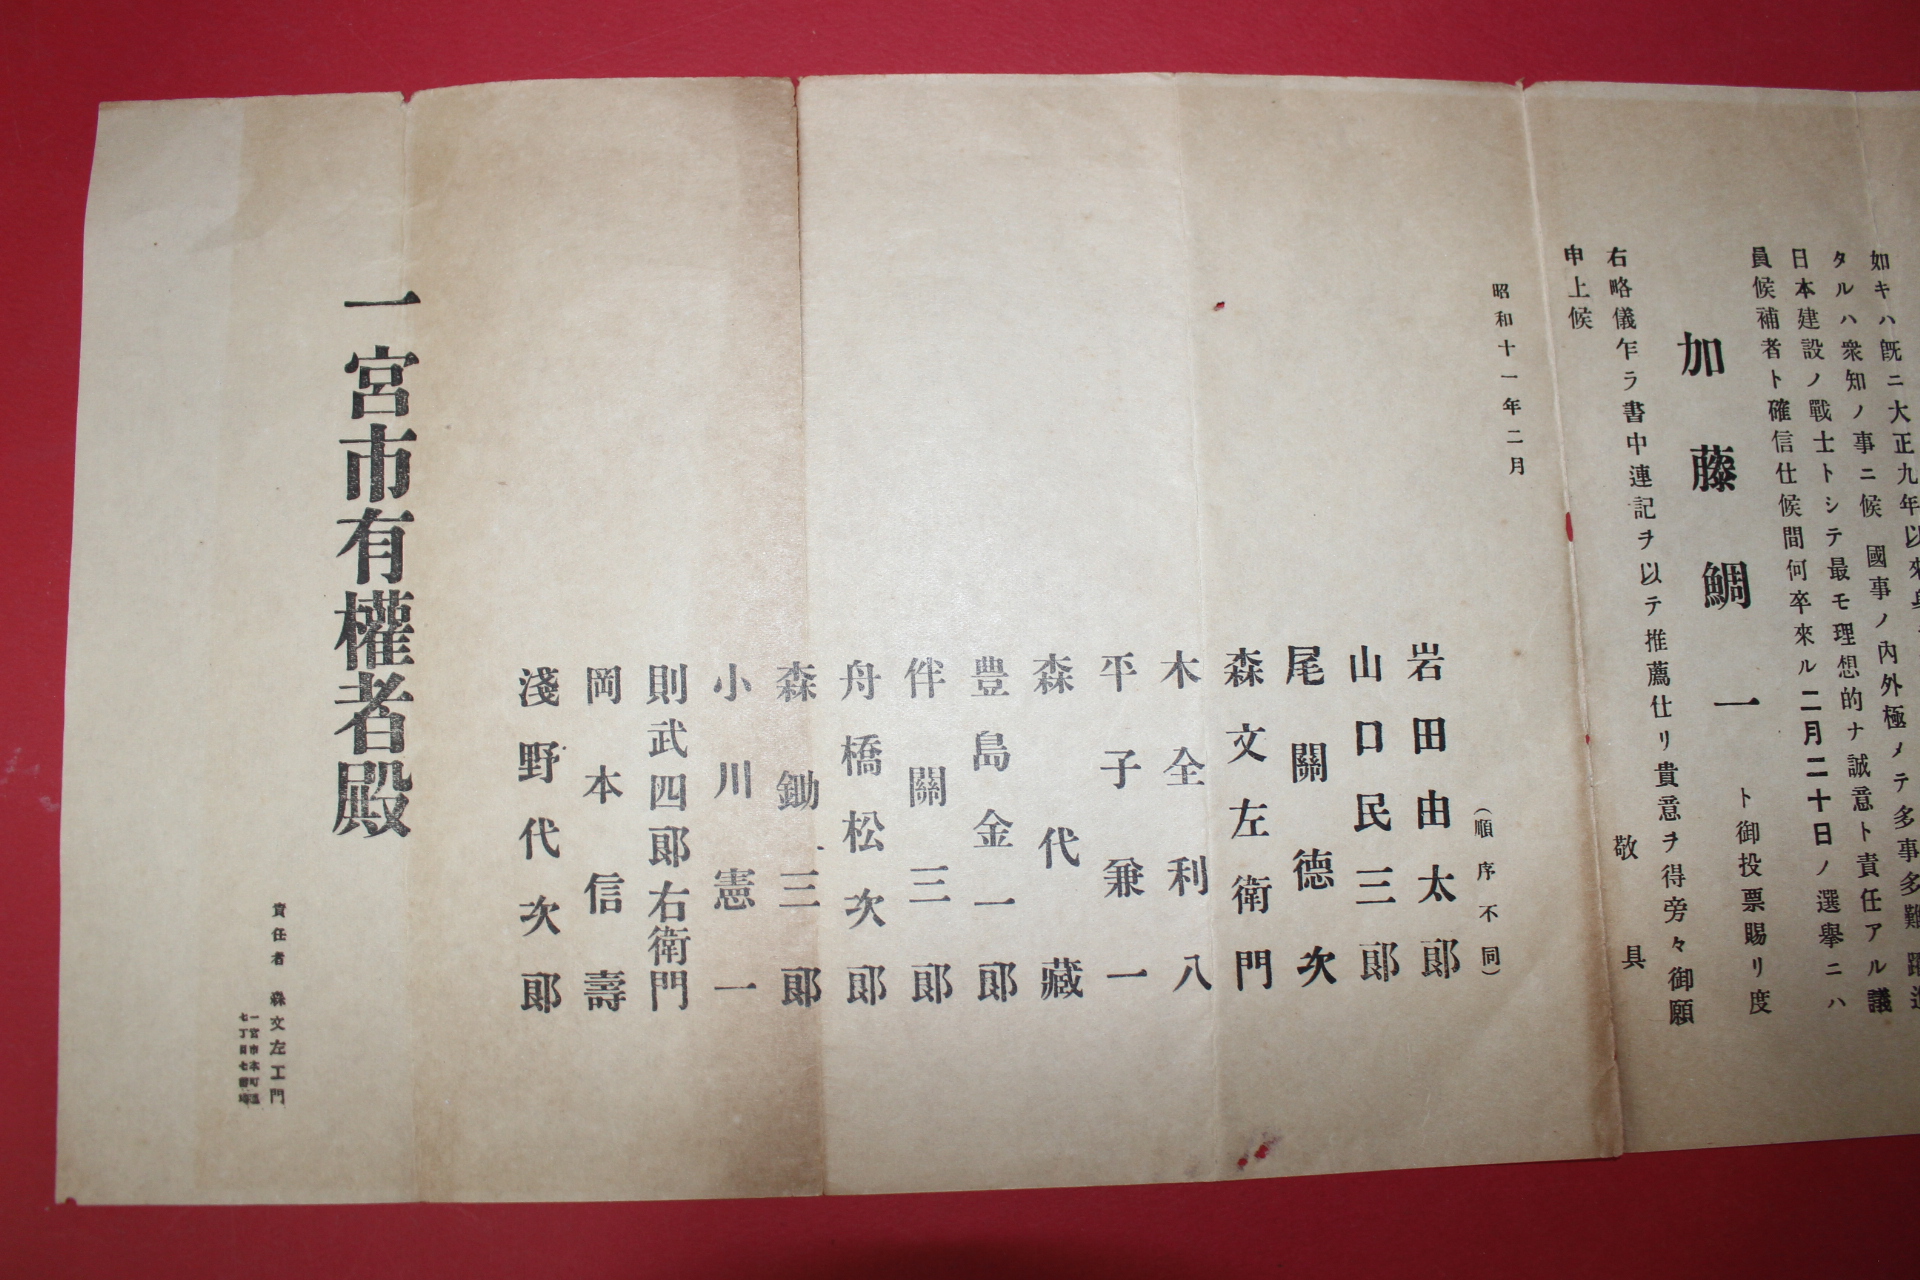 如キハ旣ニ大正九年以來
タルハ衆知ノ事ニ候 國事ノ內外極メテ多事多難
日本建設ノ戰士トシテ最モ理想的ナ誠意ト責任アル議
員候補者ト確信仕候間何卒來ル二月二十日ノ選擧ニハ
加藤鯛一
ト御投票賜リ度
右略儀乍ラ書中連記ヲ以テ推薦仕リ貴意ヲ得旁々御願
申上候
敬具
昭和十一年二月
(順序不同)
岩田由太郞
山口民三郞
尾關德次
森文左衞門
木全利八
平子兼一
森代藏
豊島金一郞
伴關三郞
舟橋松次郞
森鋤三郞
小川憲一
則武四郞右衞門
岡本信壽
淺野代次郞
一宮市有權者殿
責任者 森文左エ門
一宮市本町通
七丁目七番地